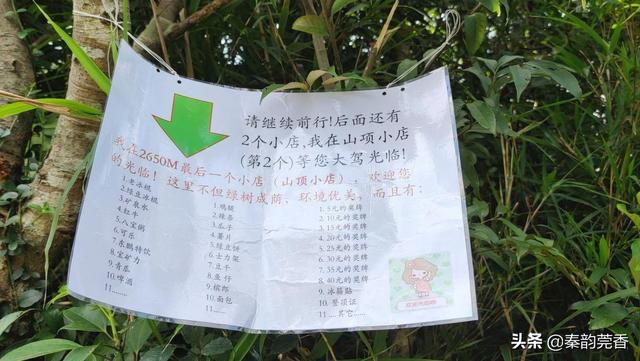 请继续前行!后面还有
2个小店,我在山顶小店
(第2个)等您大驾光临!
我在2650M最后一个小店(山顶小店),欢迎您
的光临!这里不但绿树成荫、环境优美,而且有:
1.老冰棍
2.绿豆冰棍
3.矿泉水
4.红牛
5.八宝粥
6.可乐
7.东鹏特饮
8.宝矿力
9.青瓜
10.啤酒
11.......
1.鸡腿
2.辣条
3.瓜子
4.薯片
5.绿豆饼
6.士力架
7.豆干
8.鱼仔
9.槟郎
10.面包
11.......
1.5元的奖牌
2.10元的奖牌
3.15元的奖牌
4.20元的奖牌
5.25元的奖牌
6.30元的奖牌
7.35元的奖牌
8.40元的奖牌
9.冰箱贴
10.登顶证
11....其它....
头条 @秦韵莞香